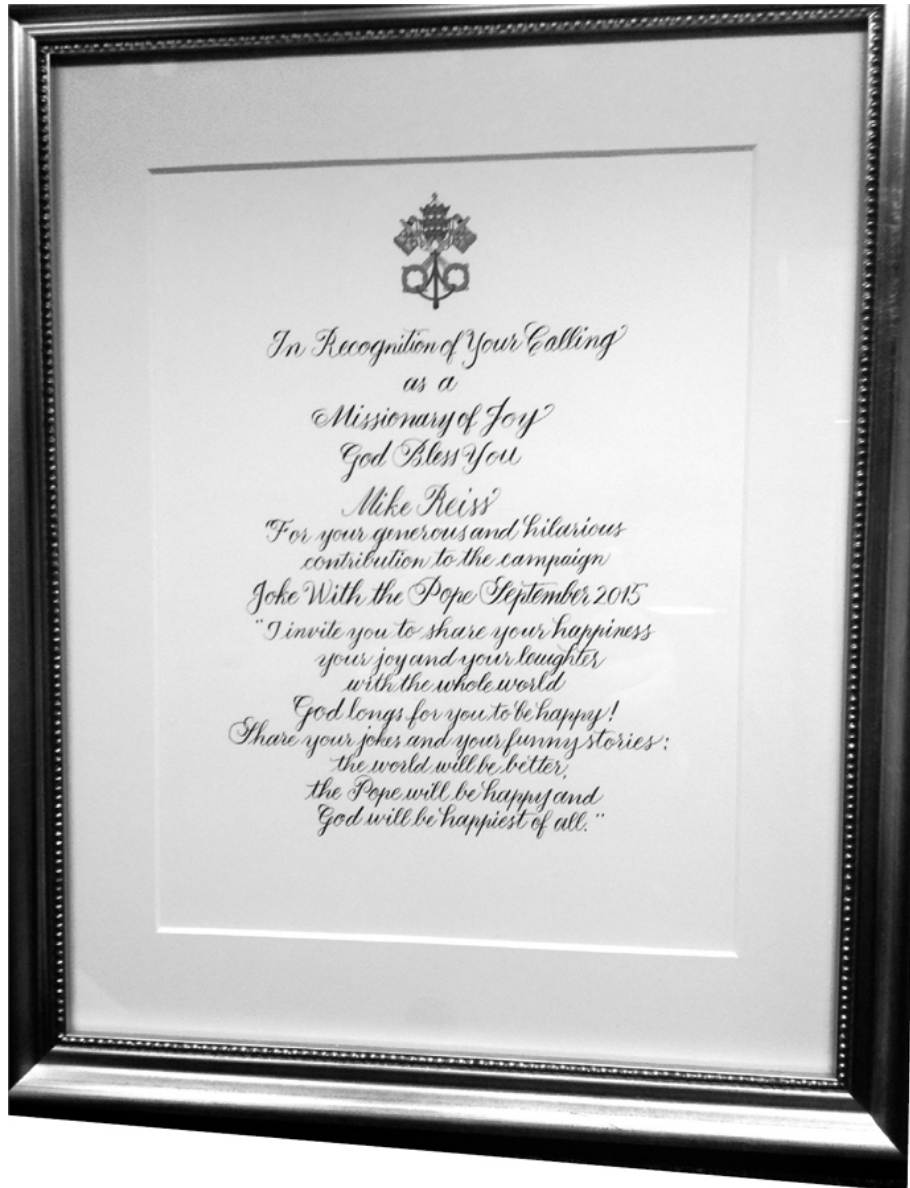 In Recognition of Your Calling
as a
Missionary of Joy
God Bless You
Mike Reiss
"For your generous and hilarious
contribution to the campaign
Joke With the Pope September 2015
"I invite you to share your happiness
your joy and your laughter
with the whole world
God longs for you to be happy!
Share your jokes and your funny stories:
the world will be better,
the Pope will be happy and
God will be happiest of all."